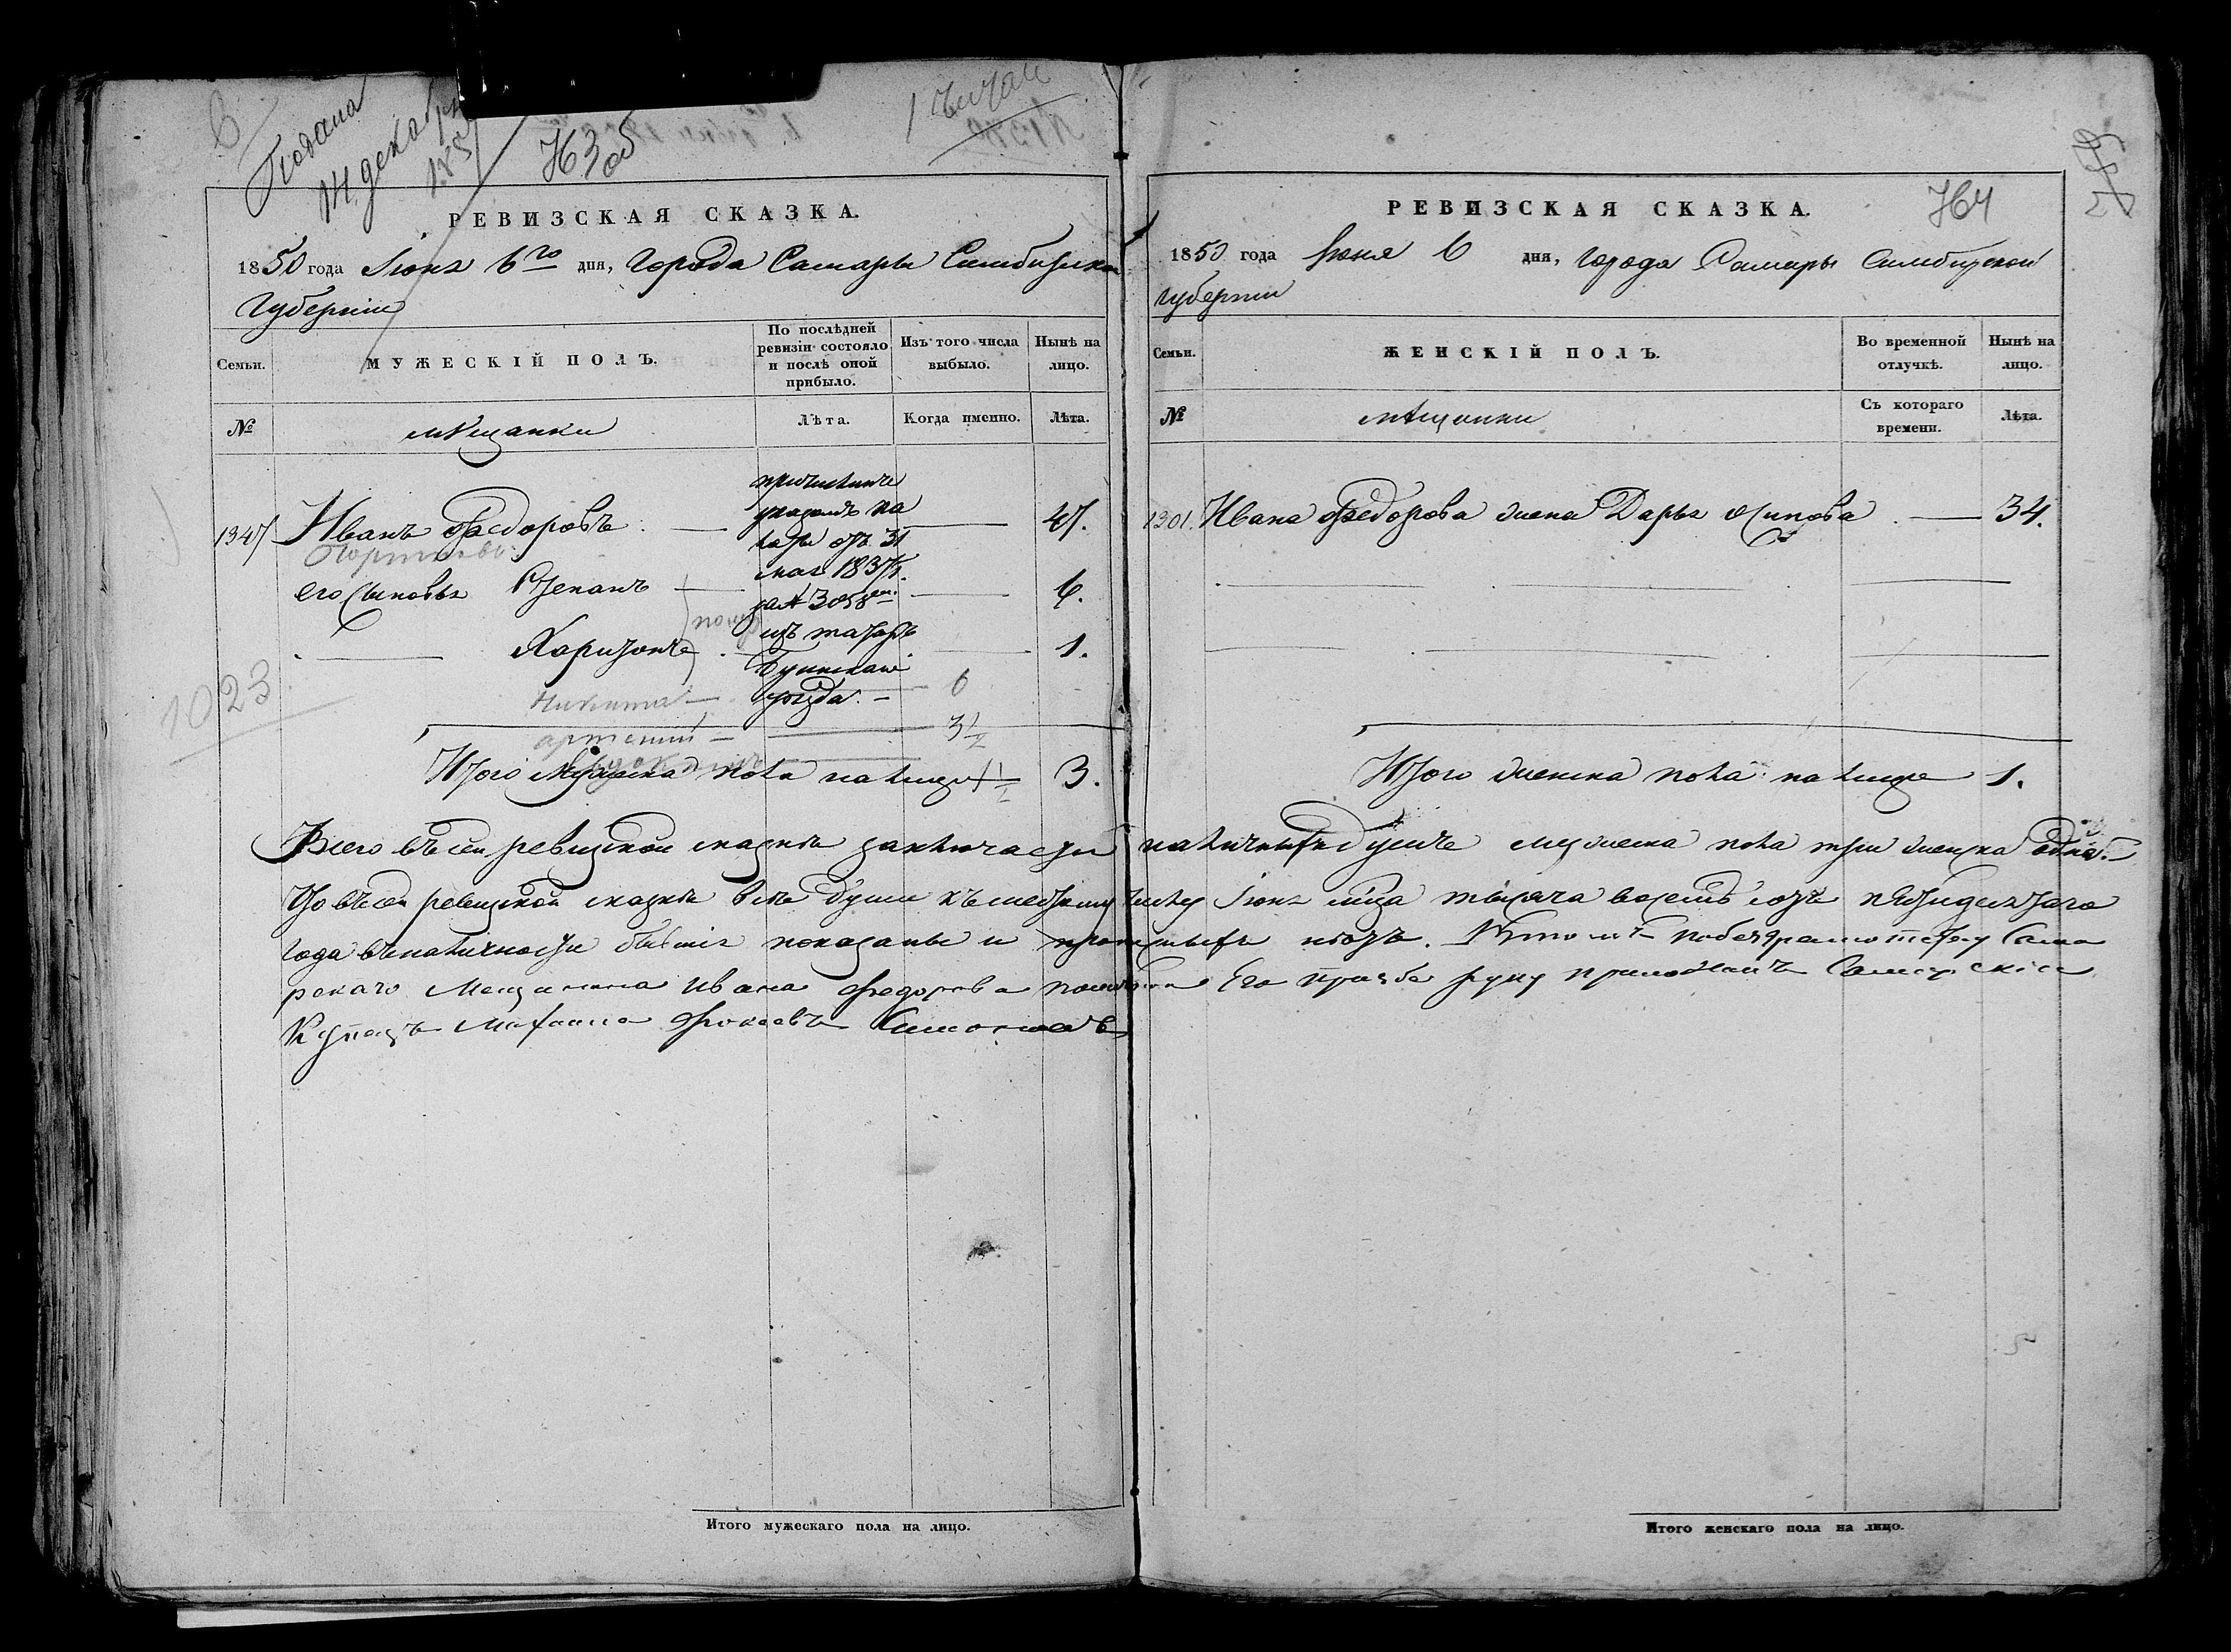 Подана
14 декабря
185
1 съищ
763 об
РЕВИЗСКАЯ СКАЗКА.
1850 года Іюня 6го дня, Города Самары Симбирской
Губерніи
Семьи.
МУЖЕСКІЙ ПОЛЪ.
По послѣдней ревизіи состояло и послѣ оной прибыло.
Изъ того числа выбыло.
Нынѣ на лицо.
№
мѣщанки
Лѣта.
Когда именно.
Лѣта.
1347 Иванъ Федоровъ 47.
причисленъ
указомъ ка
тары отъ 31
мая 1837 г.
за № 3058
изъ татаръ
Буинскаго
уѣзда.
его сыновья Степанъ 6.
Харитонъ 1.
1023
Никита 6
артемий 3 1/2
Итого Мужеска пола на лицо 3.
Всего въ сей ревизской сказкѣ заключается
что въ сей ревизской сказкѣ всѣ души къ шестому числу
года въ наличности бывшія показаны и
рскаго Мещанина Ивана Федорова
Купецъ Михаила
Итого мужескаго пола на лицо.
764
РЕВИЗСКАЯ СКАЗКА.
1850 года Іюня 6 дня, города Самары Симбирской
губернии
Семьи.
ЖЕНСКІЙ ПОЛЪ.
Во временной отлучкѣ.
Нынѣ на лицо.
№
мѣщанки
Съ котораго времени.
Лѣта.
1301. Ивана Федорова жена Дарья Осипова 34.
Итого женска пола на лице 1.
наличныхъ душъ мужеска пола три женска одна.
Іюня мца тысяча восемь сотъ пятидесятаго
нѣтъ. Въ томъ
Его прозбе руку приложилъ Самарскіи
Итого женскаго пола на лицо.